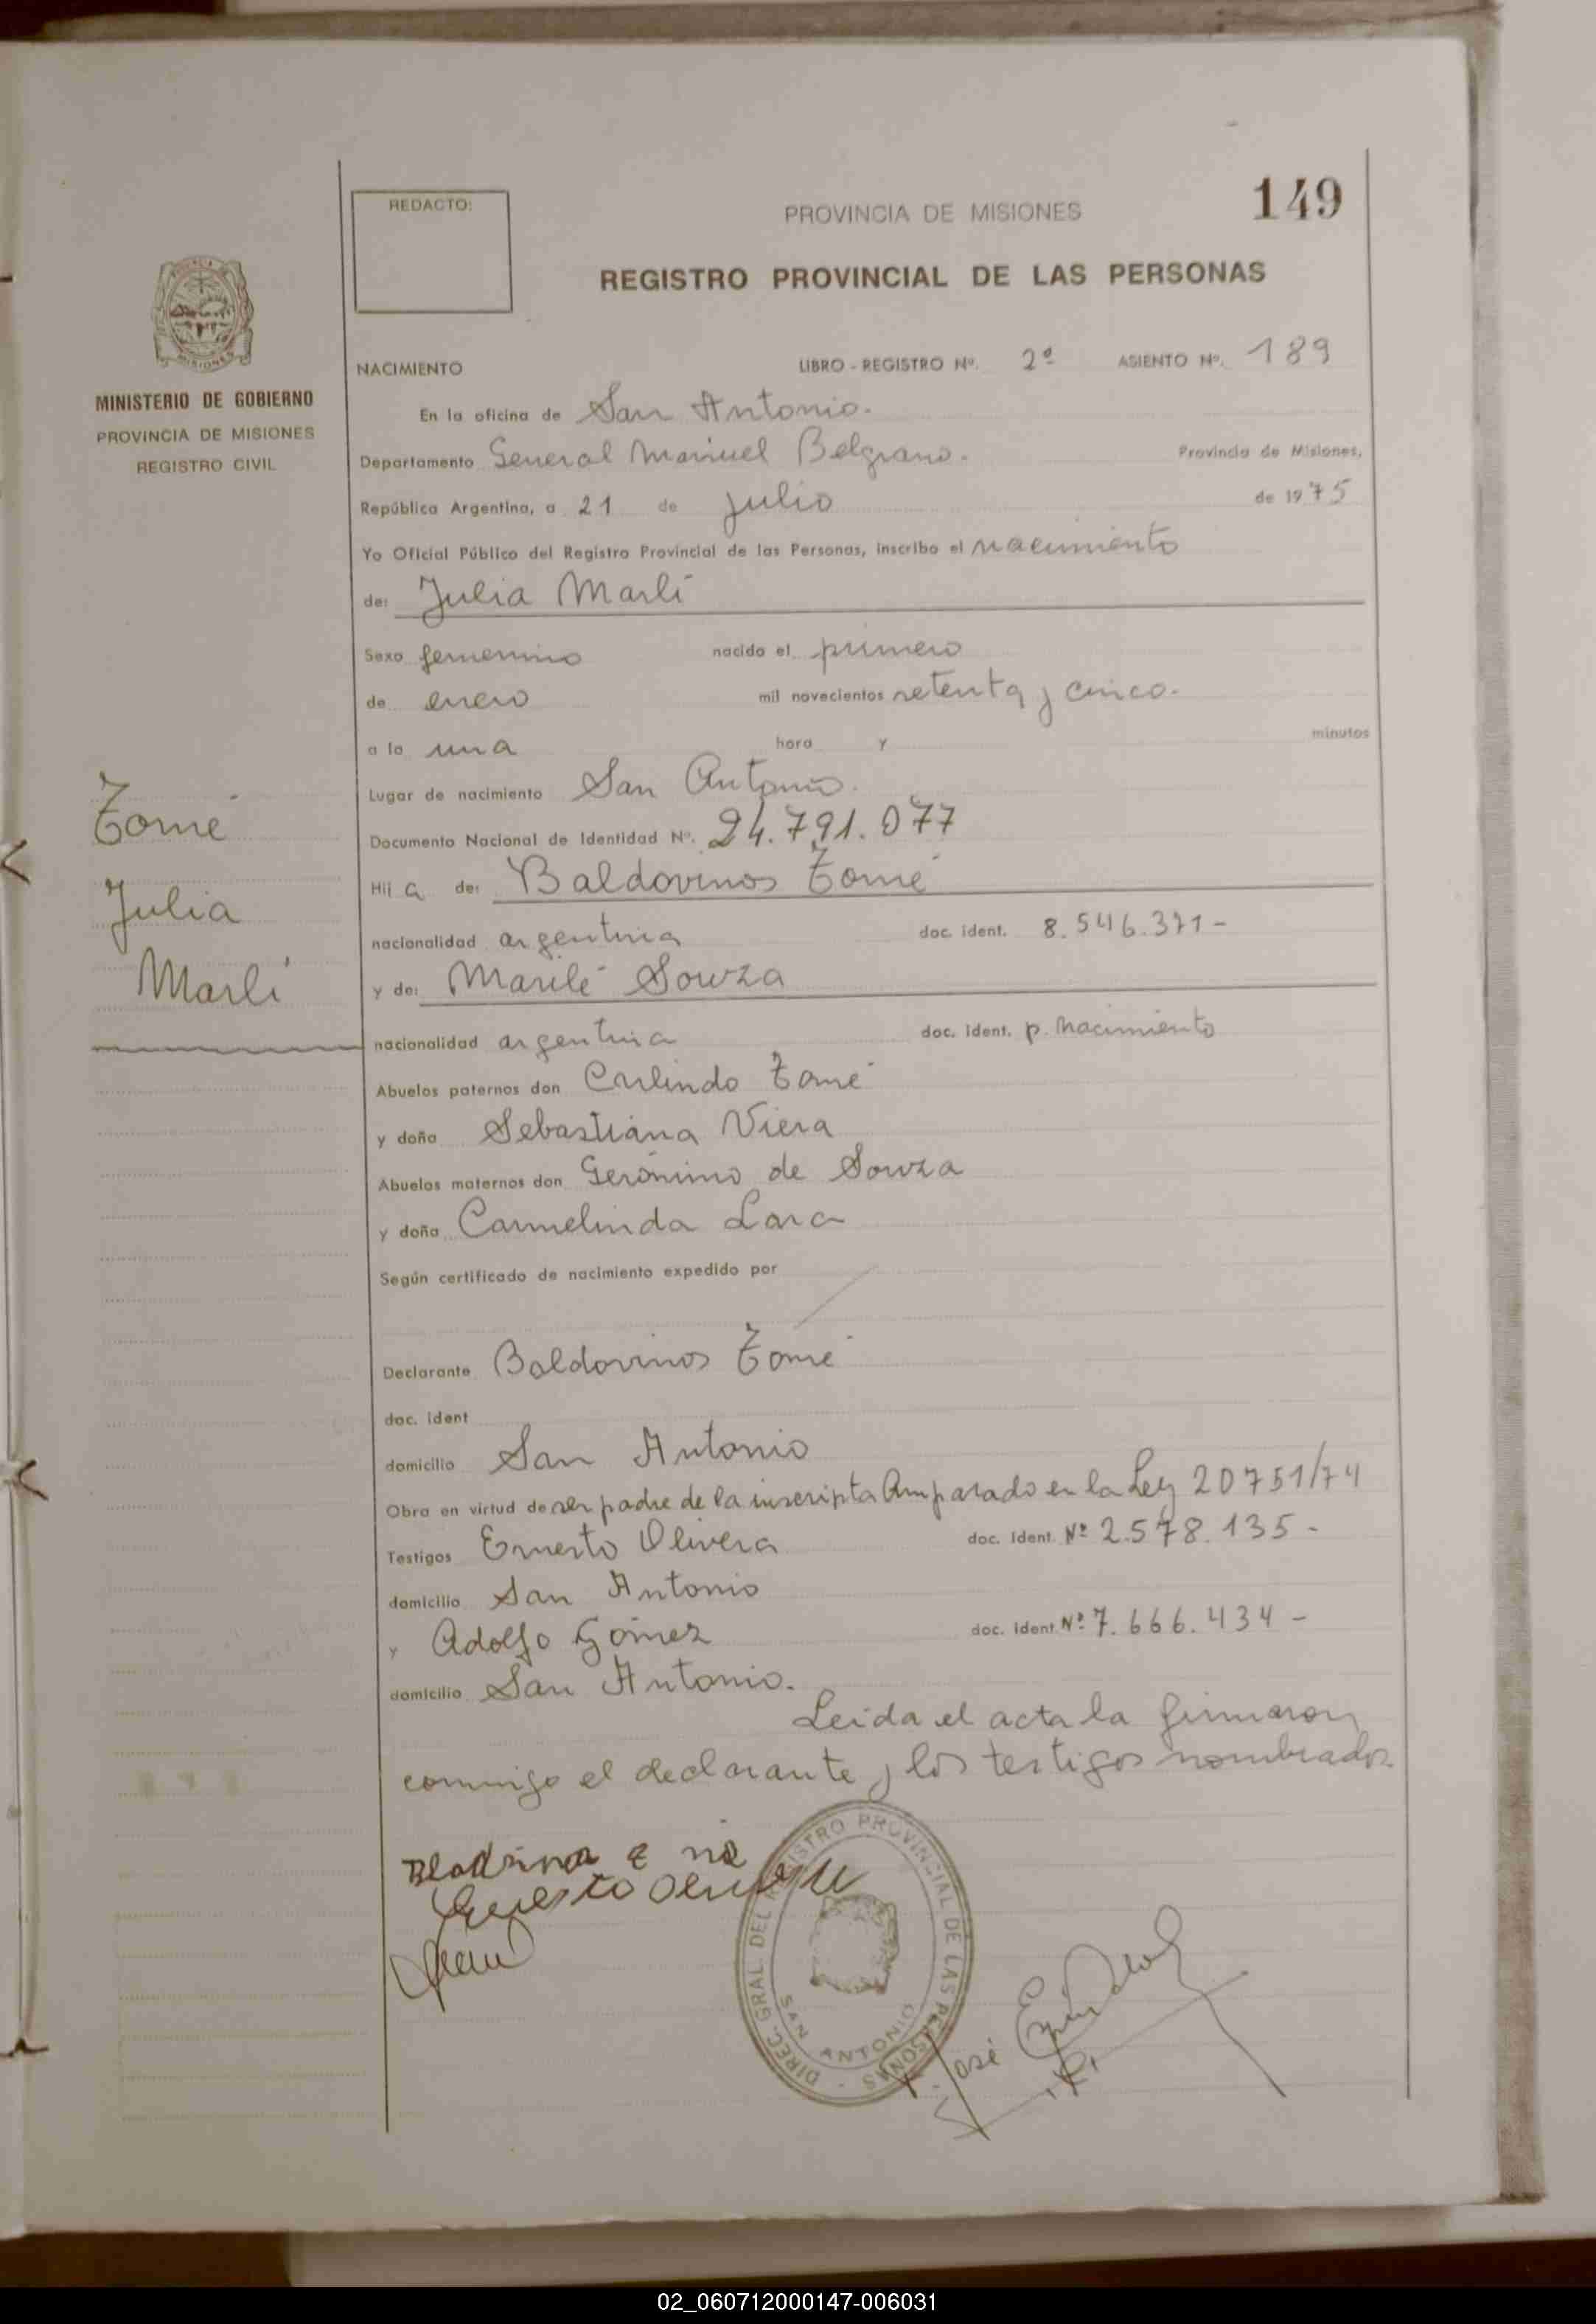 149
REDACTO:
PROVINCIA DE MISIONES
REGISTRO PROVINCIAL DE LAS PERSONAS
MISIONES
MINISTERIO DE GOBIERNO
PROVINCIA DE MISIONES
REGISTRO CIVIL
NACIMIENTO LIBRO - REGISTRO Nº. 2º ASIENTO Nº. 189
En la oficina de San Antonio.
Departamento General Manuel Belgrano. Provincia de Misiones,
República Argentina, a 21 de julio de 1975
Yo Oficial Público del Registro Provincial de las Personas, inscribo el nacimiento
de: Julia Marlí
Sexo femenino nacido el primero
de enero mil novecientos setenta y cinco.
a la una hora y minutos
Lugar de nacimiento San Antonio.
Documento Nacional de Identidad Nº. 24.791.077
Hij a de: Baldovinos Tomé
nacionalidad argentina doc. ident. 8.546.371 -
y de: Marilé Souza
nacionalidad argentina doc. ident. p. Nacimiento
Tomé
Julia
Marlí
Abuelos paternos don Erlindo Tomé
y doña Sebastiana Viera
Abuelos maternos don Gerónimo de Souza
y doña Carmelinda Lara
Según certificado de nacimiento expedido por
Declarante Baldovinos Tomé
doc. ident
domicilio San Antonio
Obra en virtud de ser padre de la inscripta Amparado en la Ley 20751/74
Testigos Ernesto Olivera doc. ident. Nº 2.578.135 -
domicilio San Antonio
y Adolfo Gómez doc. ident Nº 7.666.434 -
domicilio San Antonio.
Leída el acta la firmaron
conmigo el declarante y los testigos nombrados
DIREC. GRAL. DEL REGISTRO PROVINCIAL DE LAS PERSONAS -
SAN ANTONIO
José
02_060712000147-006031